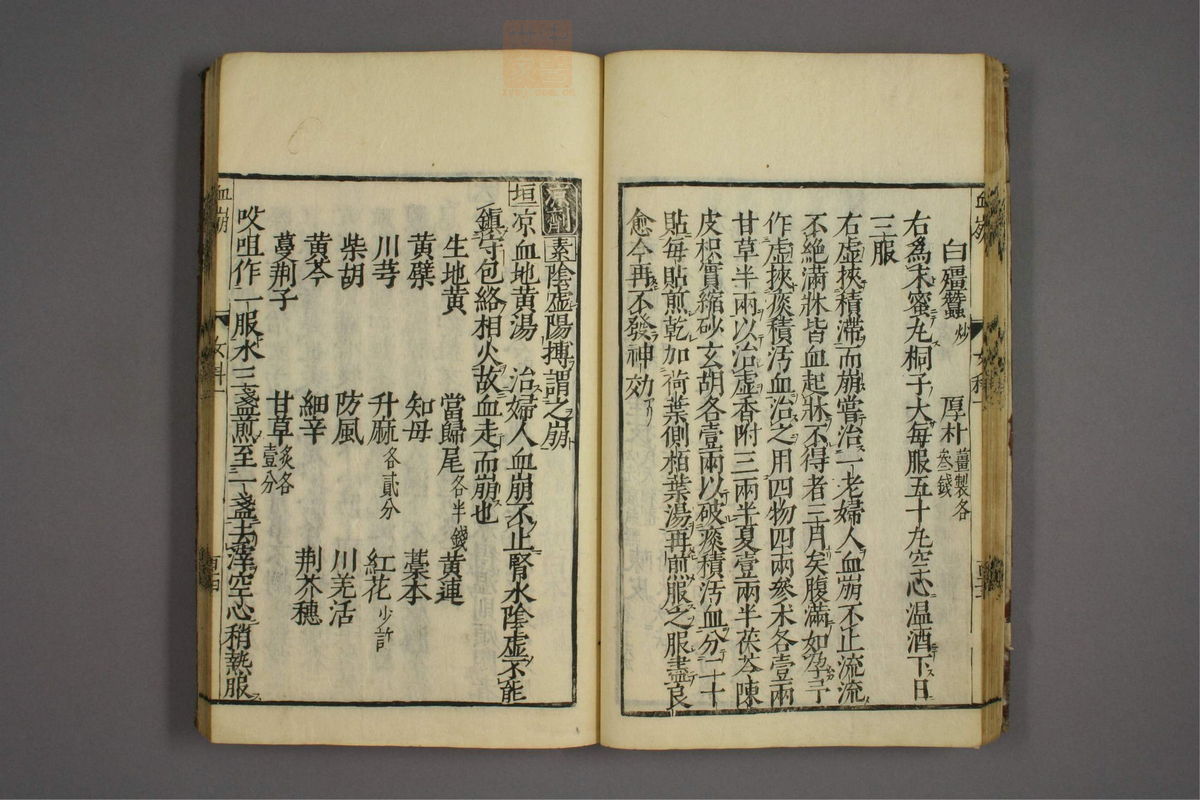 白殭蠶炒 厚朴薑製各叁錢
右為末蜜丸桐子大每服五十丸空心温酒下日
三服
右虛挾積滯而崩嘗治一老婦人血崩不止流流
不絶滿牀皆血起牀不得者三月矣腹滿如孕予
作虛挾痰積汚血治之用四物四兩參术各壹兩
甘草半兩以治虛香附三兩半夏壹兩半茯苓陳
皮枳實縮砂玄胡各壹兩以破痰積汚血分二十
貼每貼煎乾加荷葉側栢葉湯再煎服之服盡良
愈今再不發神効
凉劑 素陰虛陽搏謂之崩
垣凉血地黄湯 治婦人血崩不止腎水陰虛不能
鎮守包絡相火故血走而崩也
生地黄 當歸尾各半錢 黄連
黄檗 知母 藁本
川芎 升麻各貳分 紅花少許
柴胡 防風 川羌活
黄芩 細辛 荆芥穗
蔓荆子 甘草炙各壹分
㕮咀作一服水三盞煎至一盞去滓空心稍熱服
血崩
女科
血崩
女科